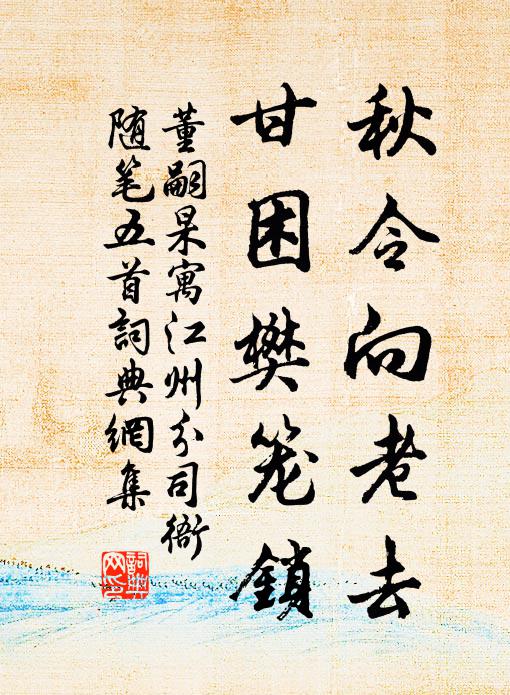 秋令向老去
甘困樊笼鎖
董嗣杲寓江州分司衙
随笔五首詞典網集